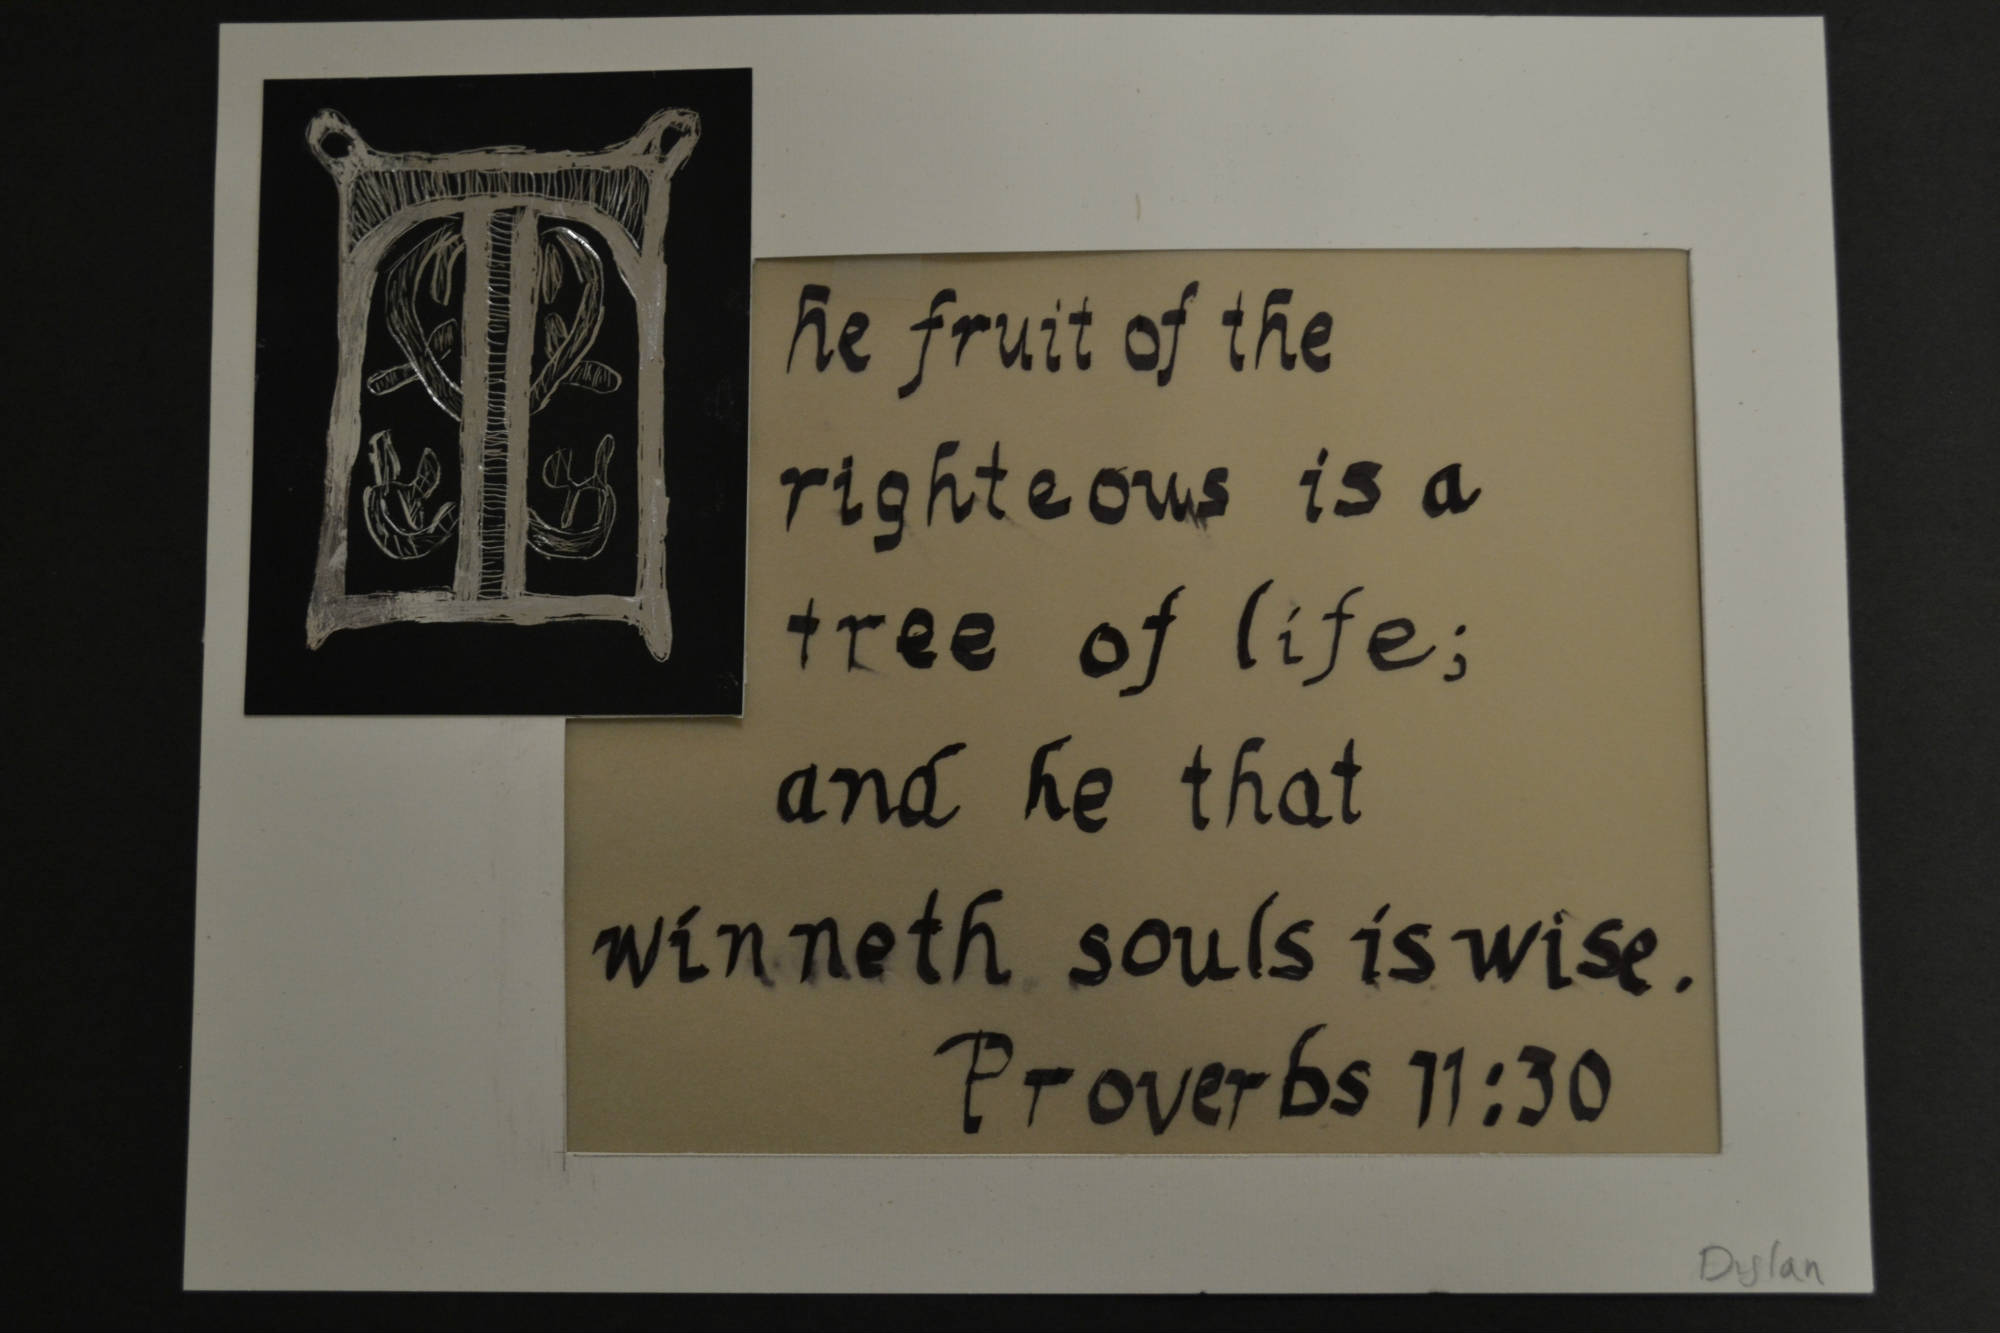 The fruit of the
righteous is a
tree of life;
and he that
winneth souls is wise.
Proverbs 11:30
Dylan